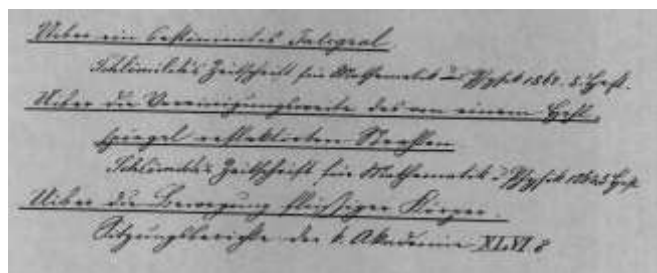 Ueber ein bestimmtes Integral
Schlömilchs Zeitschrift für Mathematik u Physik 1861. 8. Heft.
Ueber die Vereinigungsweite des von einem Hohl-
spiegel reflektirten Strahlen
Schlömilchs Zeitschrift für Mathematik u Physik 1862 Heft
Uiber die Bewegung flüssiger Körper.
Sitzungsberichte der k. Akademie XLVI 8